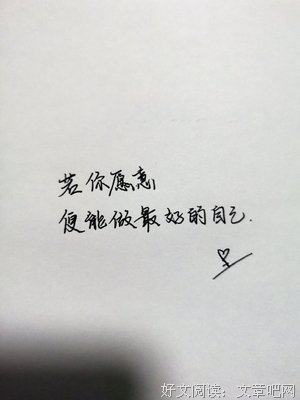 若你愿意
便能做最好的自己.
好文阅读：文章吧网